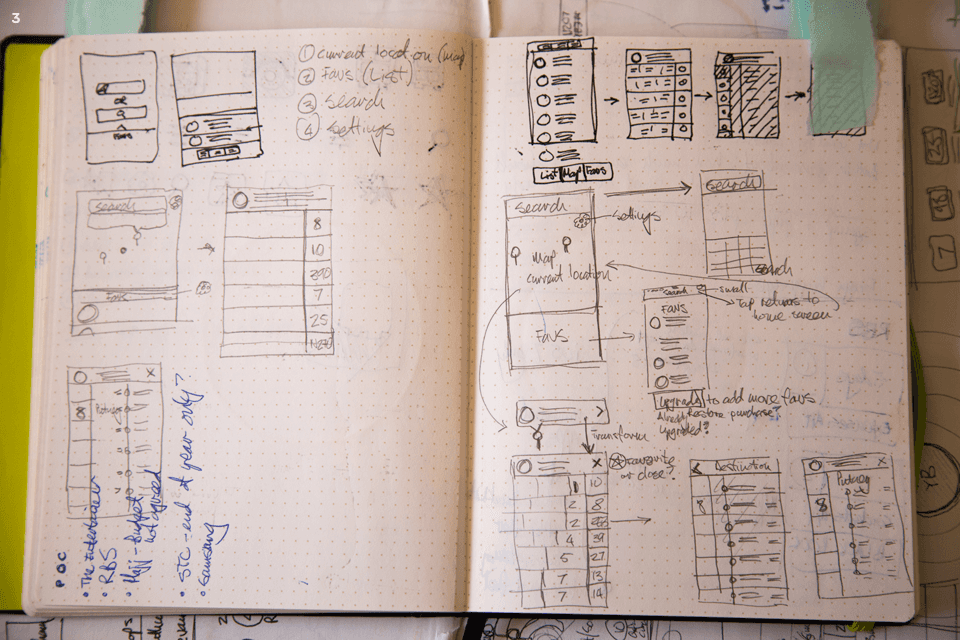 3
① current location (map)
② Favs (List)
③ search
④ settings
Favs
search
Favs
8
10
290
7
25
N290
8
Pictures
X
POC
• The entertainer
• RBS
• Hajj - Budget
not agreed
• STC - end of year only?
• Samsung
List Map Favs
search
settings
map
current location
Favs
search
search
search
install
Tap returns to
home screen
FAVS
upgrade to add more favs
Already Restore purchase?
upgraded?
Transform
X
Favourite
or close?
1 10
2 8
2
4 39
5 27
7 13
7 14
Destination
8
X
8
25
13
7
YB